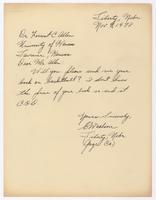 Liberty, Nebr.
Nov. 8, 1938
Dr. Forrest C. Allen
University of Kansas
Lawrence, Kansas
Dear Mr. Allen
Will you please send me your
book on Basketball? I don't know
the price of your book so send it
C.O.D.
Yours Sincerely,
Liberty, Nebr.
(Gage Co.)